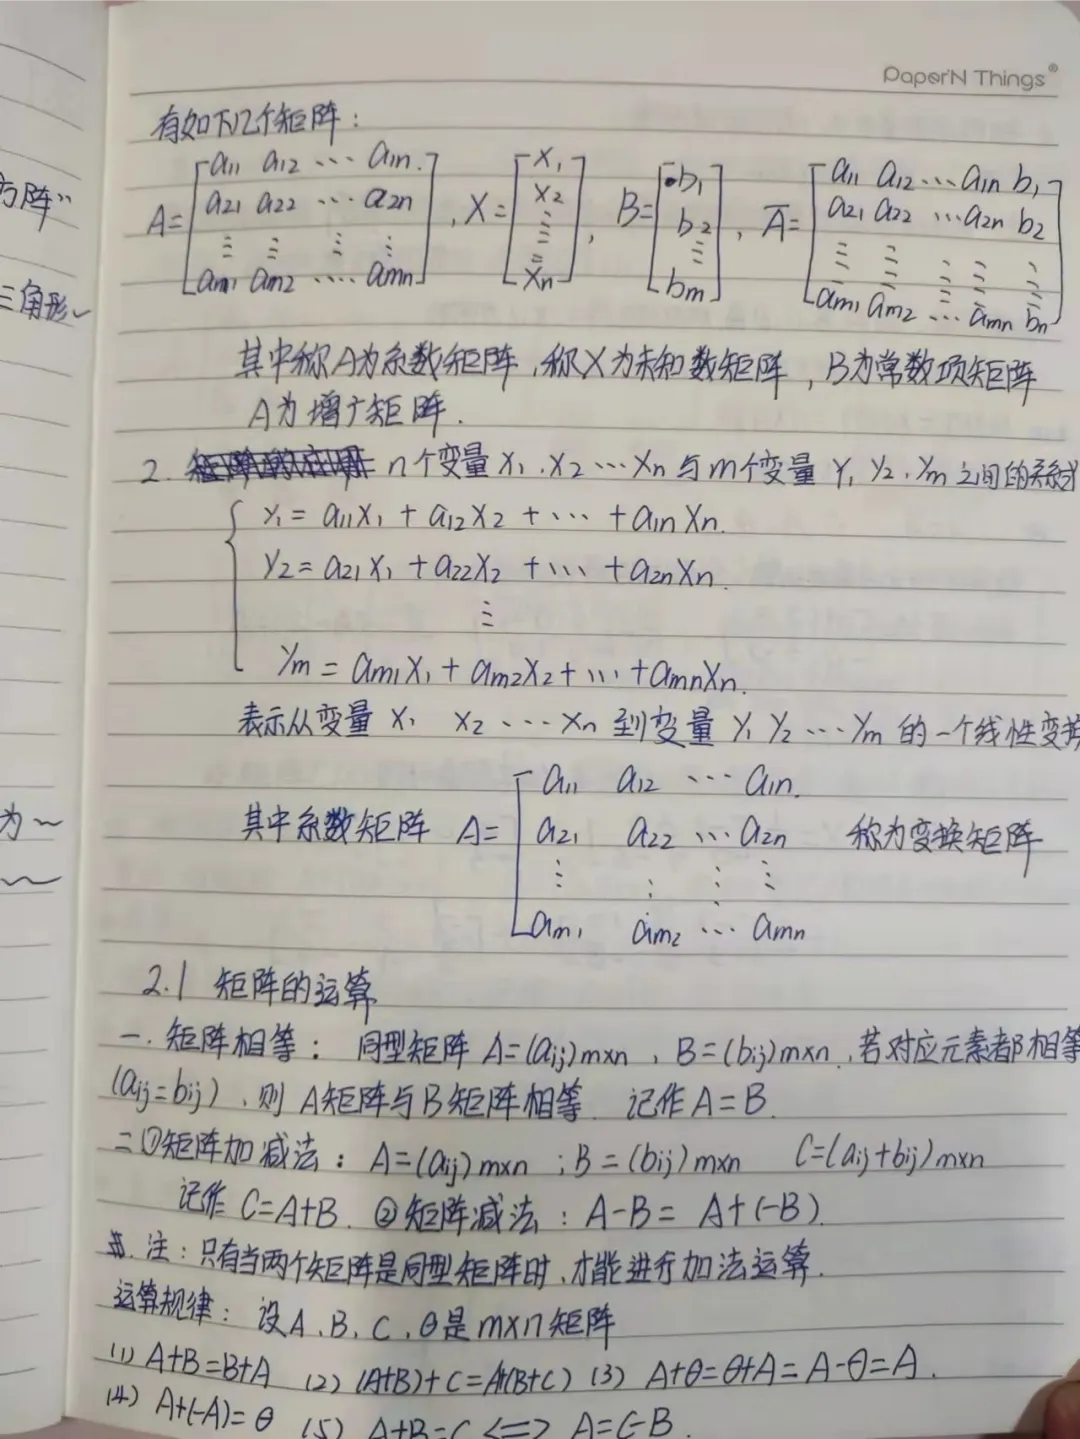 Paper'N Things®
方阵"
三角形
为
有如下几个矩阵:
A=[a11 a12 ⋯ a1n. , X=[x1 , B=[b1 , A̅=[a11 a12⋯a1n b1
a21 a22 ⋯ a2n x2 b2 a21 a22 ⋯a2n b2
⋮ ⋮ ⋮ ⋮ ⋮ ⋮ ⋮ ⋮ ⋮ ⋮ ⋮
am1 am2 ⋯ amn] xn] bm] am1 am2 ⋯ amn bn]
其中称A为系数矩阵,称X为未知数矩阵,B为常数项矩阵
A为增广矩阵.
2. n个变量 x1、x2⋯xn 与m个变量 y1 y2、ym 之间的关系式
{ y1 = a11x1 + a12x2 + ⋯ + a1nxn.
y2 = a21x1 + a22x2 + ⋯ + a2nxn.
⋮
ym = am1x1 + am2x2 + ⋯ + amnxn.
表示从变量 x1 x2 、⋯ xn 到变量 y1 y2 ⋯ ym 的一个线性变换
[a11 a12 ⋯ a1n.
其中系数矩阵 A= a21 a22 ⋯ a2n 称为变换矩阵
⋮ ⋮ ⋮ ⋮
am1 am2 ⋯ amn
2.1 矩阵的运算
一.矩阵相等: 同型矩阵 A=(aij)m×n、B=(bij)m×n,若对应元素都相等
(aij=bij)、则 A矩阵与B矩阵相等 记作A=B.
二①矩阵加减法: A=(aij)m×n ; B=(bij)m×n C=(aij+bij)m×n
记作 C=A+B. ②矩阵减法: A-B= A+(-B).
注:只有当两个矩阵是同型矩阵时,才能进行加法运算.
运算规律: 设A、B、C、θ是m×n矩阵
(1) A+B=B+A (2) (A+B)+C=A+(B+C) (3) A+θ=θ+A=A-θ=A.
(4) A+(-A)=θ (5) A+B=C <=> A=C-B.